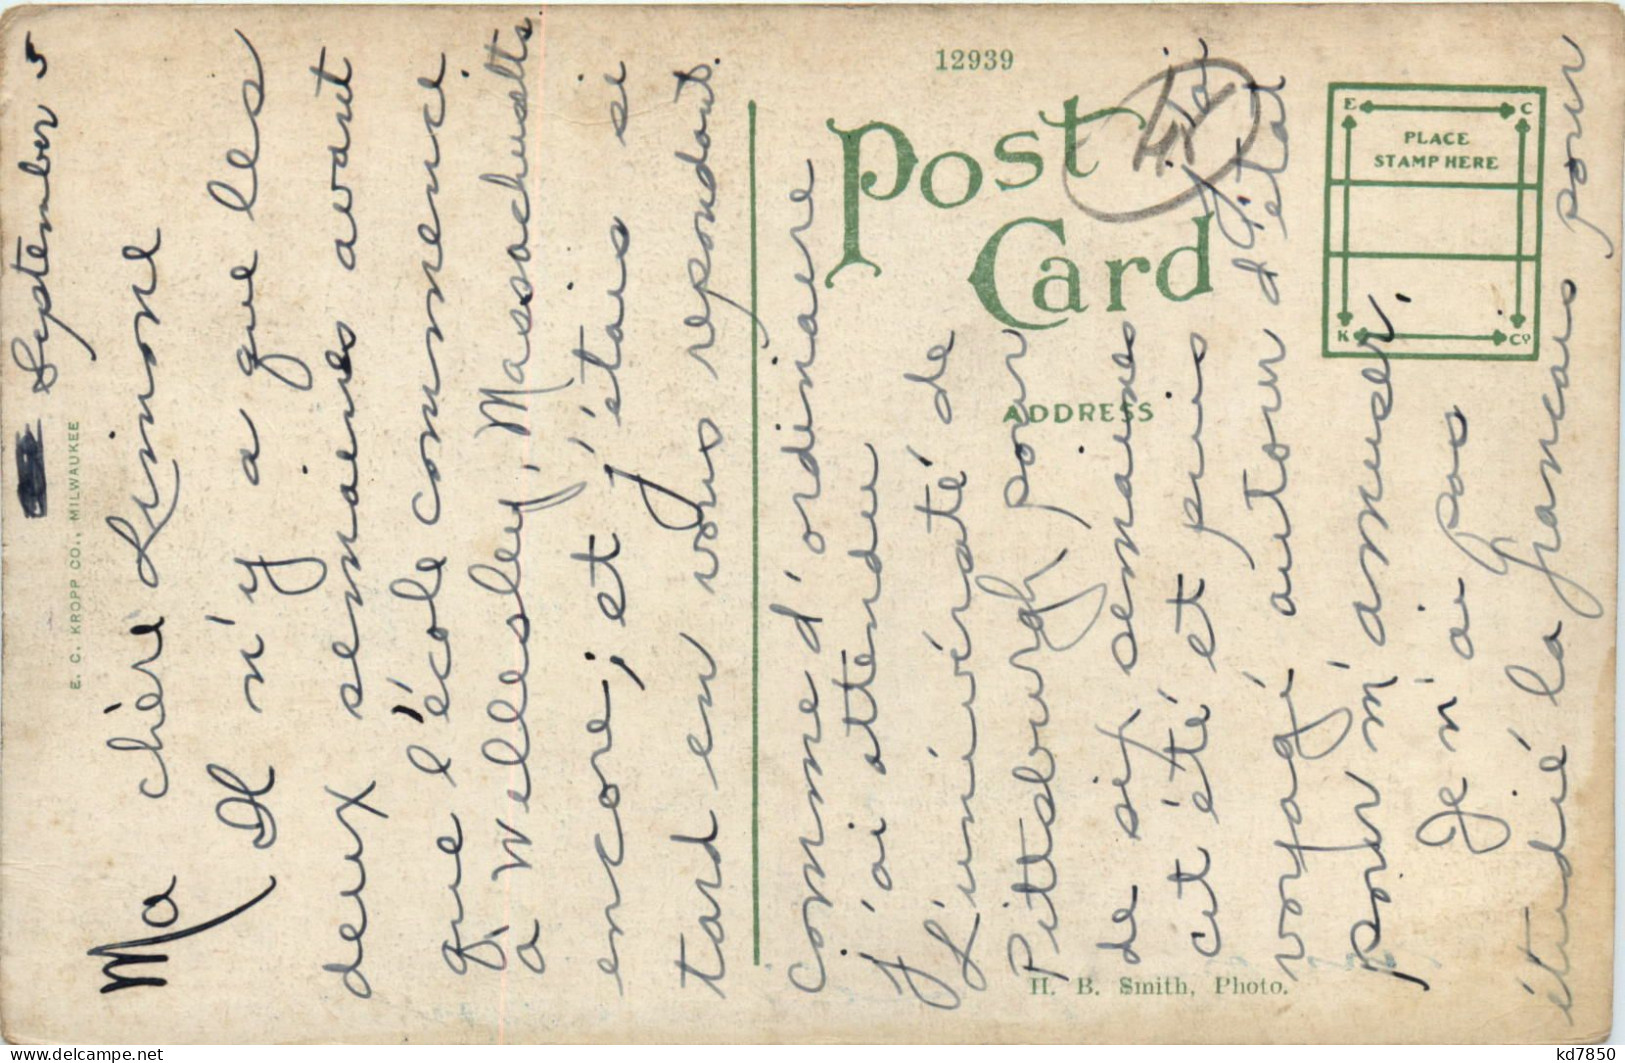 September 5
Ma chère Simone
Il n'y a que les
deux semaines avant
que l'école commence
à Wellesley, Massachusetts
encore; et j'étais si
tard en vous repondant.
comme d'ordinaire
J'ai attendu
L'univérsaté de
Pittsburgh, pour
de six semaines
cit été et puis j'ai
voyagé autour d'état
pour m'amuser.
Je n'ai pas
étudié la francais pour
12939
Post Card
ADDRESS
PLACE
STAMP HERE
E C
K Co
E. C. KROPP CO., MILWAUKEE
H. B. Smith, Photo.
kd7850